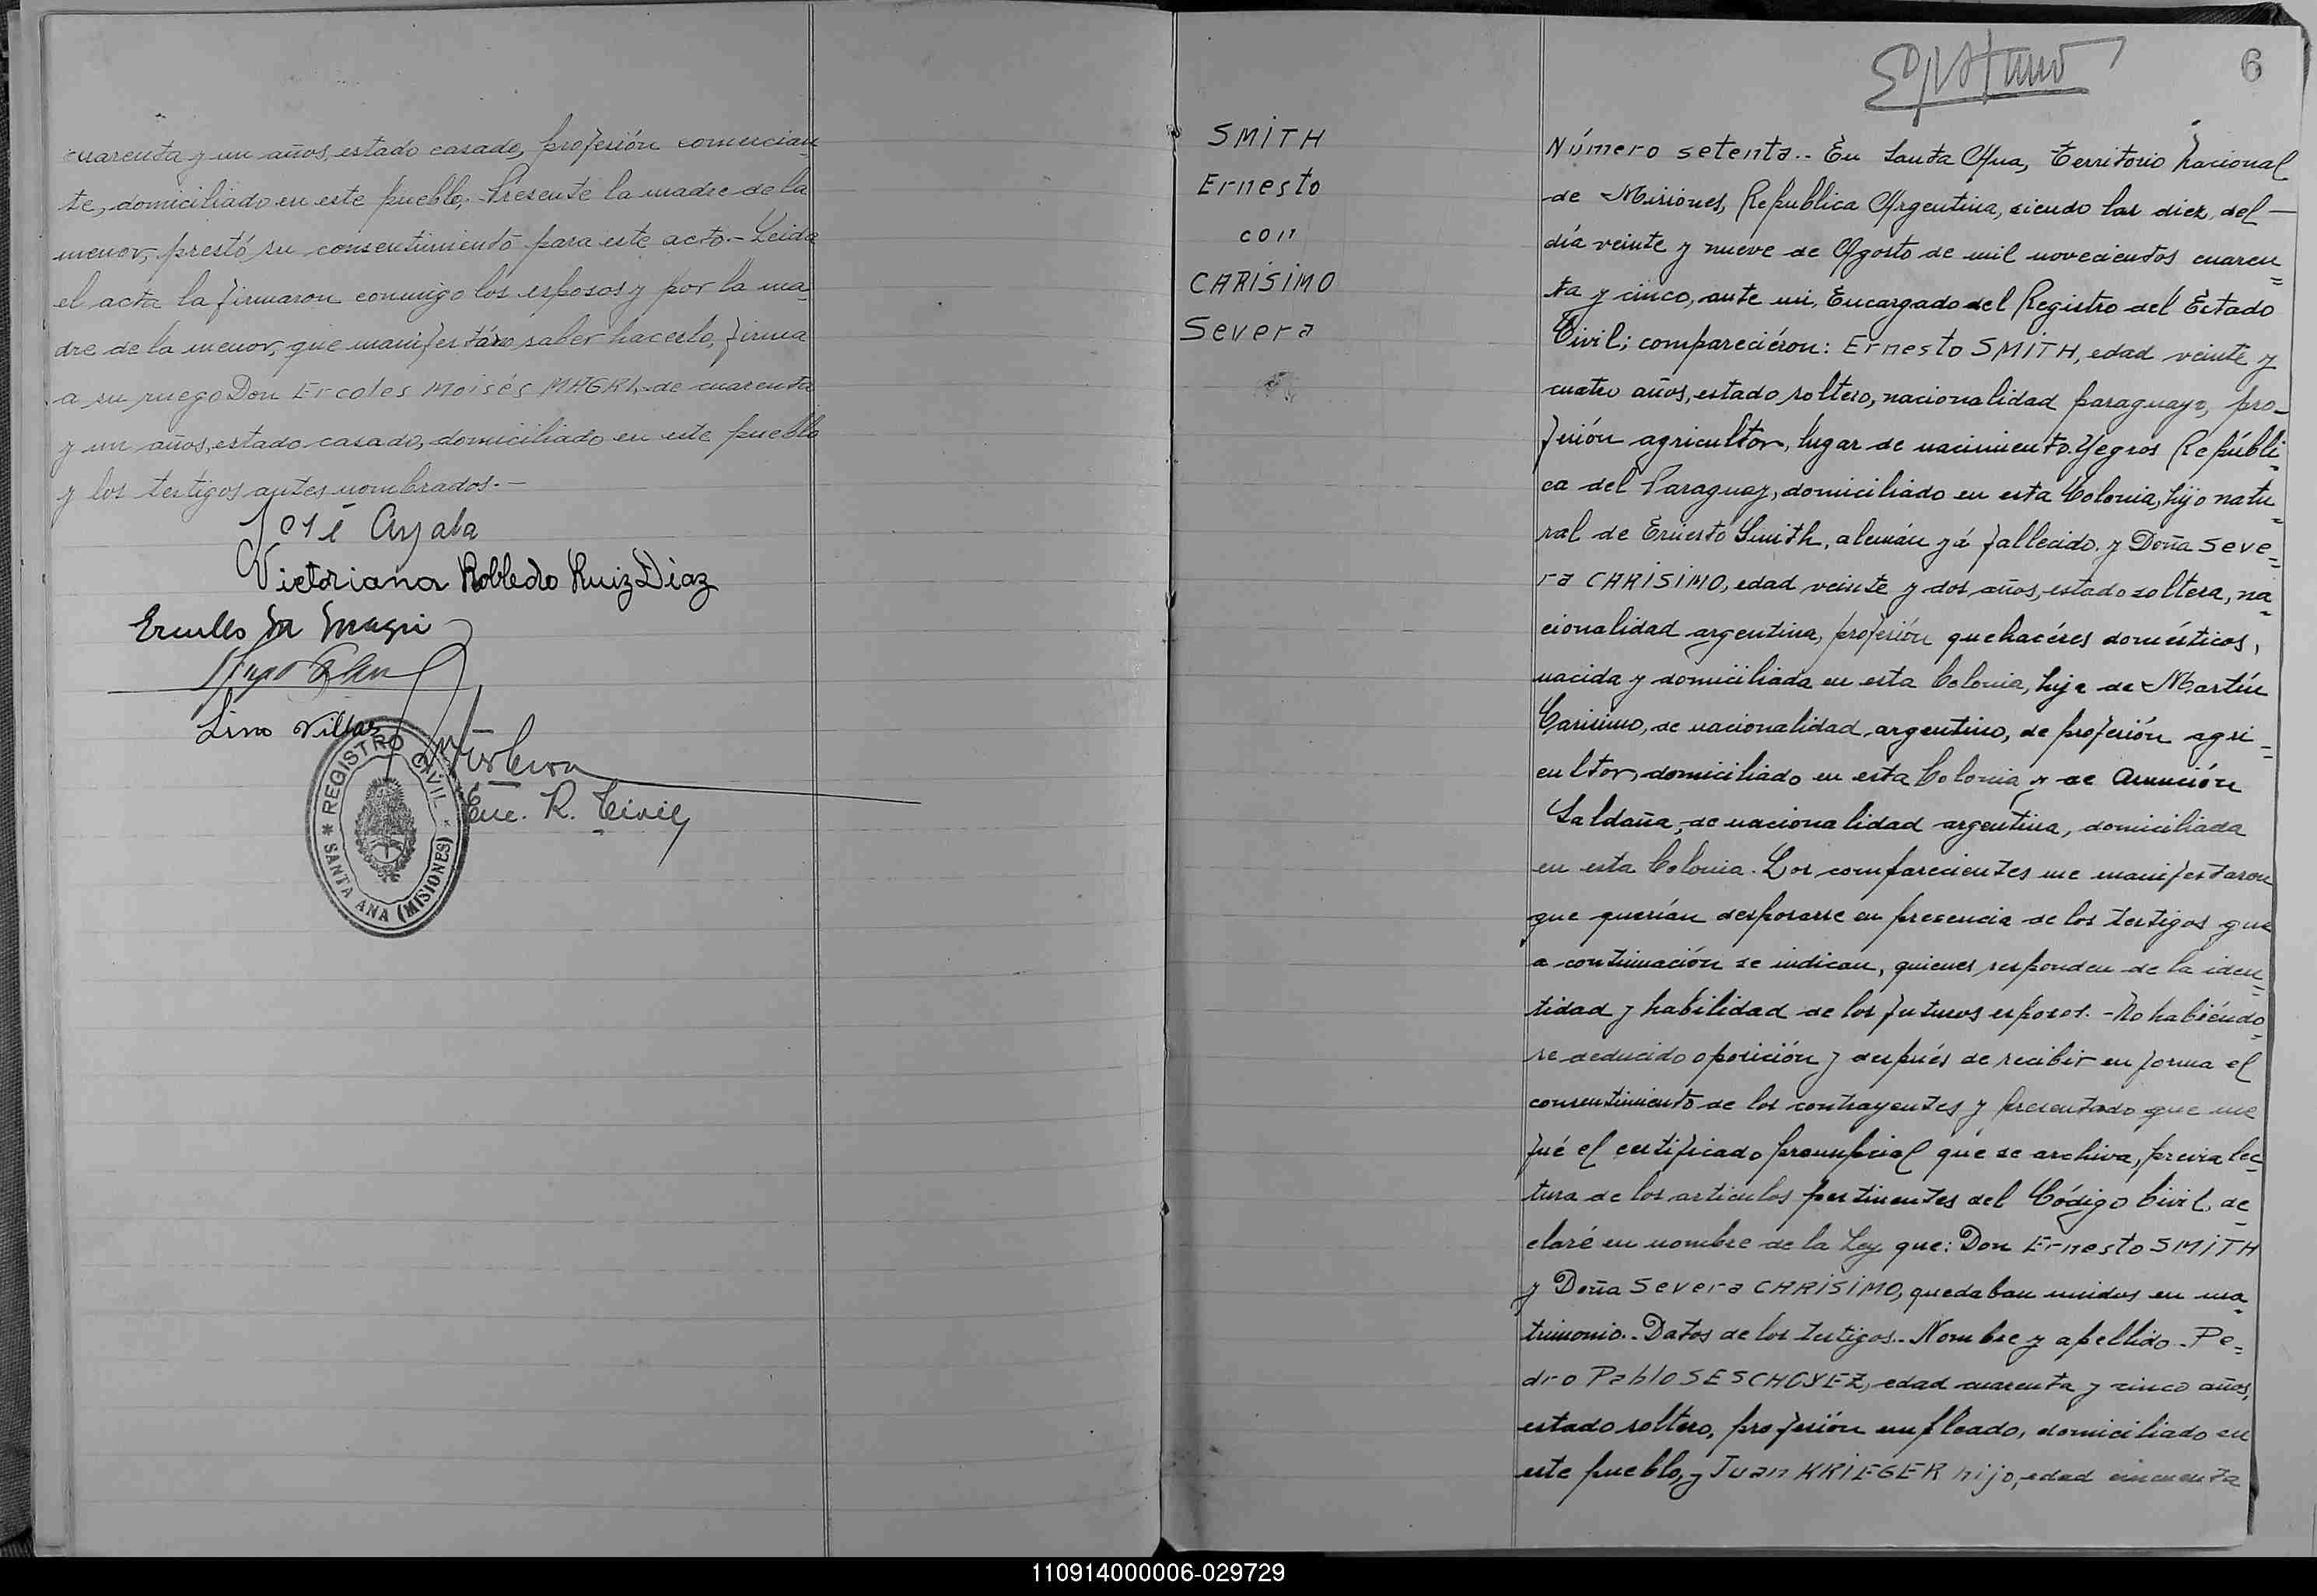 cuarenta y un años, estado casado, profesión comercian
te, domiciliado en este pueblo. Presente la madre de la
menor, prestó su consentimiento para este acto.- Leida
el acta la firmaron conmigo los esposos y por la ma
dre de la menor, que manifestó no saber hacerlo, firma
a su ruego Don Ercoles Moisés MAGRI, de cuarenta
y un años, estado casado, domiciliado en este pueblo
y los testigos antes nombrados.-
José Ayala
Victoriana Robledo Ruiz Díaz
Ercules M Magri
Lino Villar
Enc. R. Civil
* REGISTRO CIVIL *
SANTA ANA (MISIONES)
6
SMiTH
Ernesto
con
CARiSiMO
Severa
Número setenta.- En Santa Ana, Territorio Nacional
de Misiones, Republica Argentina, siendo las diez, del —
día veinte y nueve de Agosto de mil novecientos cuaren=
ta y cinco, ante mi, Encargado del Registro del Estado
Civil; compareciéron: Ernesto SMiTH, edad veinte y
cuatro años, estado soltero, nacionalidad paraguayo, pro-
fesión agricultor, lugar de nacimiento Yegros Repúbli=
ca del Paraguay, domiciliado en esta Colonia, hijo natu=
ral de Ernesto Smith, alemán yá fallecido. y Doña Seve=
ra CARiSiMO, edad veinte y dos años, estado soltera, na=
cionalidad argentina, profesión quehacéres domésticos,
nacida y domiciliada en esta Colonia, hija de Martín
Carisimo, de nacionalidad argentino, de profesión agri=
cultor, domiciliado en esta Colonia y de Asunción
Saldaña, de nacionalidad argentina, domiciliada
en esta Colonia. Los comparecientes me manifestaron
que querían desposarse en presencia de los testigos que
a continuación se indican, quienes responden de la iden=
tidad y habilidad de los futuros esposos.- No habiéndo=
se deducido oposición y después de recibir en forma el
consentimiento de los contrayentes y presentado que me
fué el certificado prenupcial que se archiva, previa lec=
tura de los articulos pertinentes del Código Civil, de=
claré en nombre de la Ley que: Don Ernesto SMiTH
y Doña Severa CARiSiMO, quedaban unidos en ma=
trimonio.- Datos de los testigos.- Nombre y apellido.- Pe=
dro Pablo edad cuarenta y cinco años,
estado soltero, profesión empleado, domiciliado en
este pueblo, y Juan KRiEGER hijo, edad cincuenta
110914000006-029729